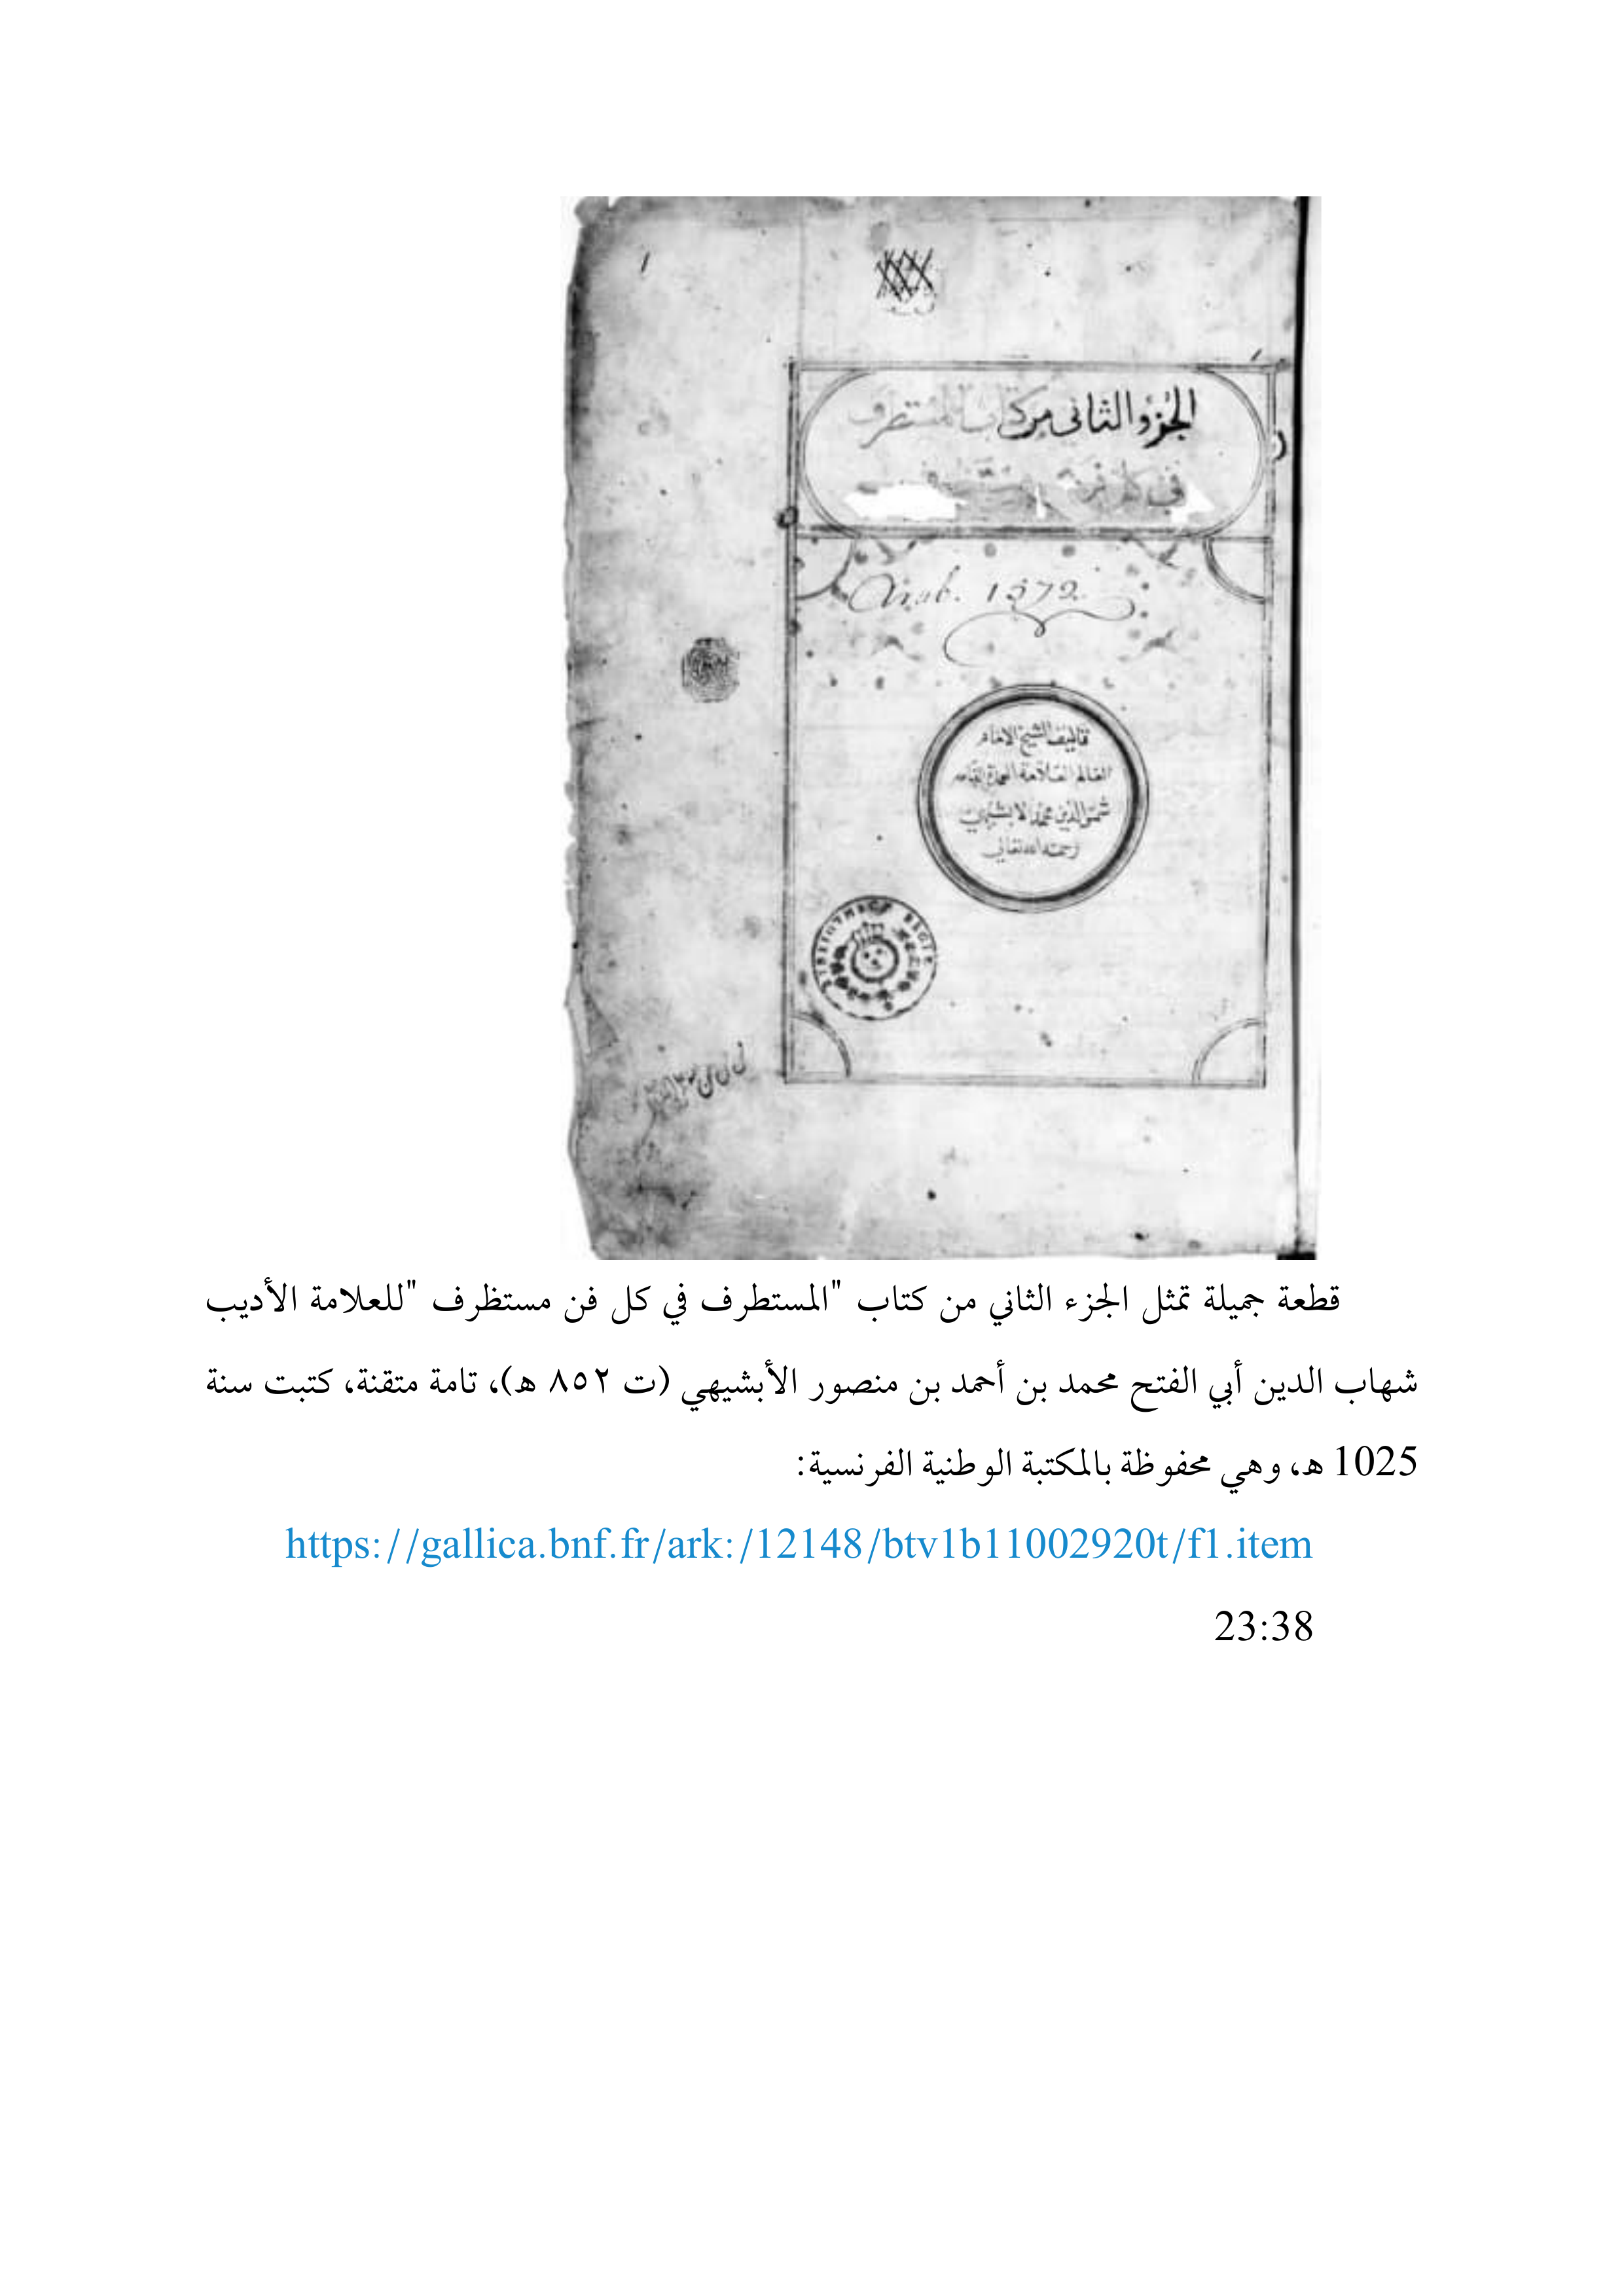 الجزؤ الثانى من كتاب المستطرف
فى كل فن مستظرف
Arab. 1372.
تاليف الشيخ الامام
العالم العلامة العمدة
شمس الدين محمد الابشيهي
رحمه الله تعالى
BIBLIOTHECÆ REGIÆ
قطعة جميلة تمثل الجزء الثاني من كتاب "المستطرف في كل فن مستظرف "للعلامة الأديب
شهاب الدين أبي الفتح محمد بن أحمد بن منصور الأبشيهي (ت ٨٥٢ هـ)، تامة متقنة، كتبت سنة
1025 هـ، وهي محفوظة بالمكتبة الوطنية الفرنسية:
https://gallica.bnf.fr/ark:/12148/btv1b11002920t/f1.item
23:38